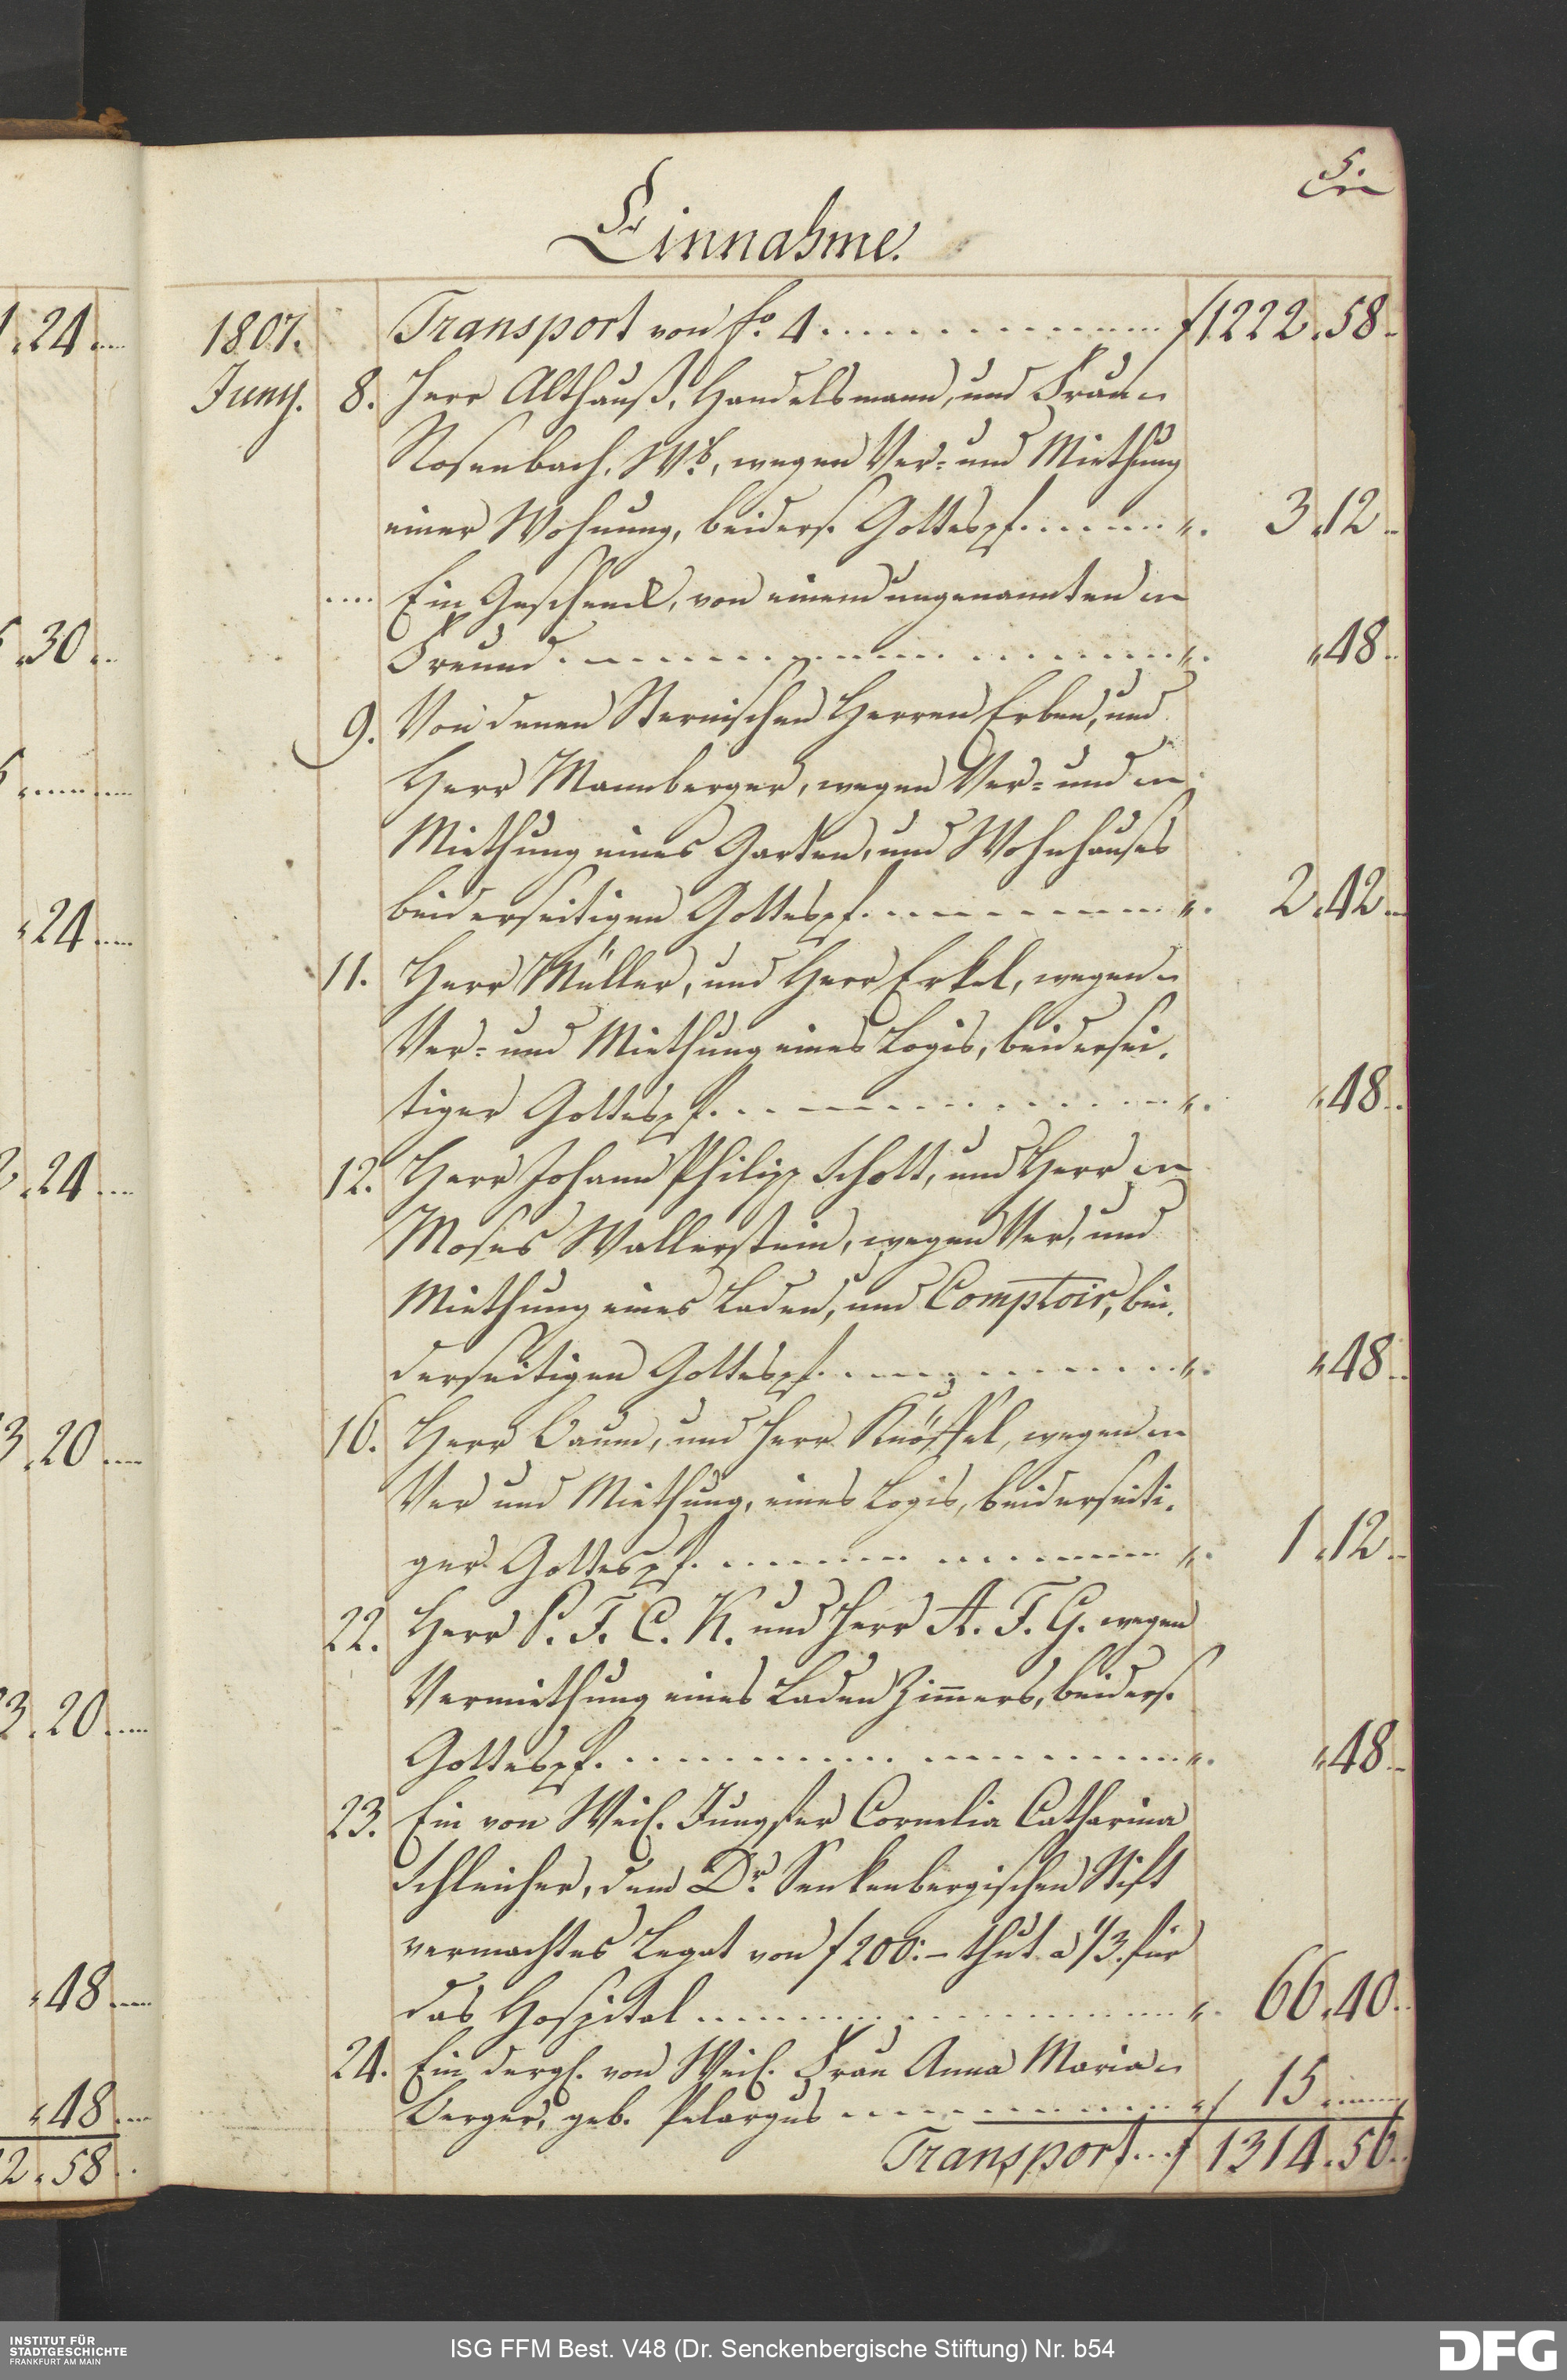 5.
Einnahme.
1807. Transport von fo. 4 . . . . f 1222.58.
Juny. 8. Herr Althauß, Handelsmann, und Frau
Rosenbach, Wb., wegen Ver- und Miethung
einer Wohnung, beiders. Gottespf. . . . . „ 3.12.
.... Ein Geschenck, von einem ungenannten
Freund . . . . „ „48.
9. Von denen Sternischen Herren Erben, und
Herr Mannberger, wegen Ver- und
Miethung eines Garten, und Wohnhauses
beiderseitigen Gottespf. . . . . „ 2.42.
11. Herr Müller, und Herr Erkel, wegen
Ver- und Miethung eines Logis, beidersei-
tiger Gottespf. . . . . „ „48.
12. Herr Johann Philipp Schott, und Herr
Moses Wallerstein, wegen Ver, und
Miethung eines Laden, und Comptoir, bei-
derseitigen Gottespf. . . . . „ „48.
16. Herr Baum, und Herr Knöffel, wegen
Ver und Miethung, eines Logis, beiderseiti-
ger Gottespf. . . . . „ 1.12.
22. Herr P. F. C. K. und Herr A. F. G. wegen
Vermiethung eines Laden Zimmers, beiders.
Gottespf. . . . . „ „48.
23. Ein von Weil. Jungfer Cornelia Catharina
Schleicher, dem Dr. Senkenbergischen Stift
vermachtes Legat von f 200:– thut a 1/3. für
das Hospital . . . . „ 66.40.
24. Ein dergl. von Weil. Frau Anna Maria
Berger, geb. Pelargus . . . . „ 15....
Transport . . . f 1314.56.
1.24....
5.30..
5......
„24....
2.24....
3.20....
3.20....
„48....
„48....
2.58..
INSTITUT FÜR
STADTGESCHICHTE
FRANKFURT AM MAIN
ISG FFM Best. V48 (Dr. Senckenbergische Stiftung) Nr. b54
DFG